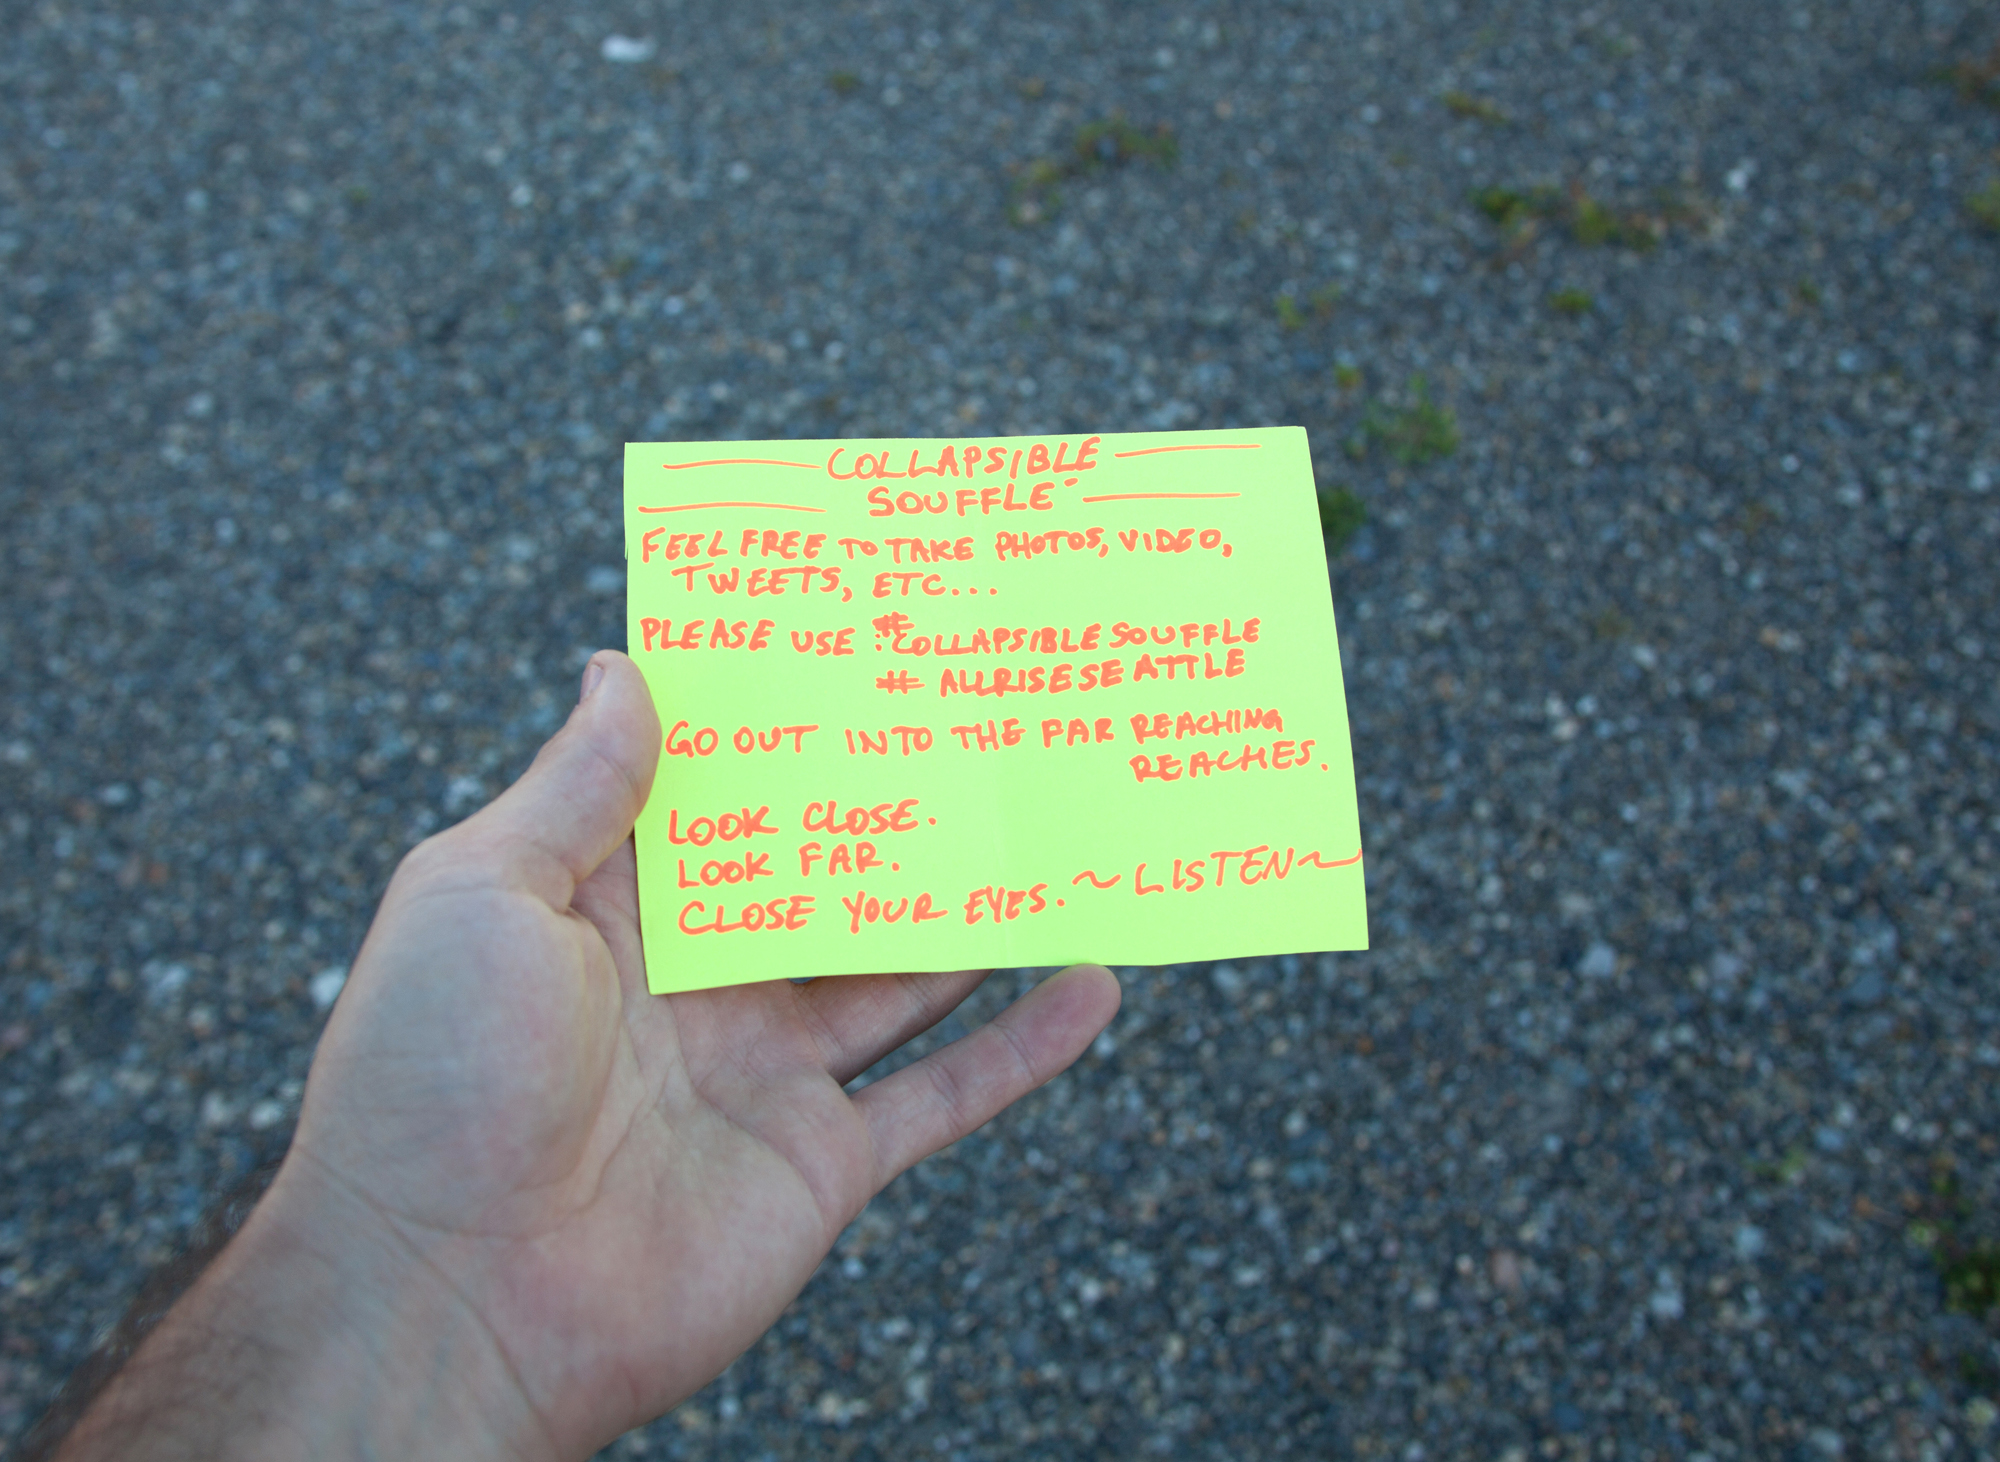 COLLAPSIBLE
SOUFFLÉ
FEEL FREE TO TAKE PHOTOS, VIDEO,
TWEETS, ETC...
PLEASE USE : #COLLAPSIBLESOUFFLE
# ALLRISESEATTLE
GO OUT INTO THE FAR REACHING
REACHES.
LOOK CLOSE.
LOOK FAR.
CLOSE YOUR EYES. ~ LISTEN ~